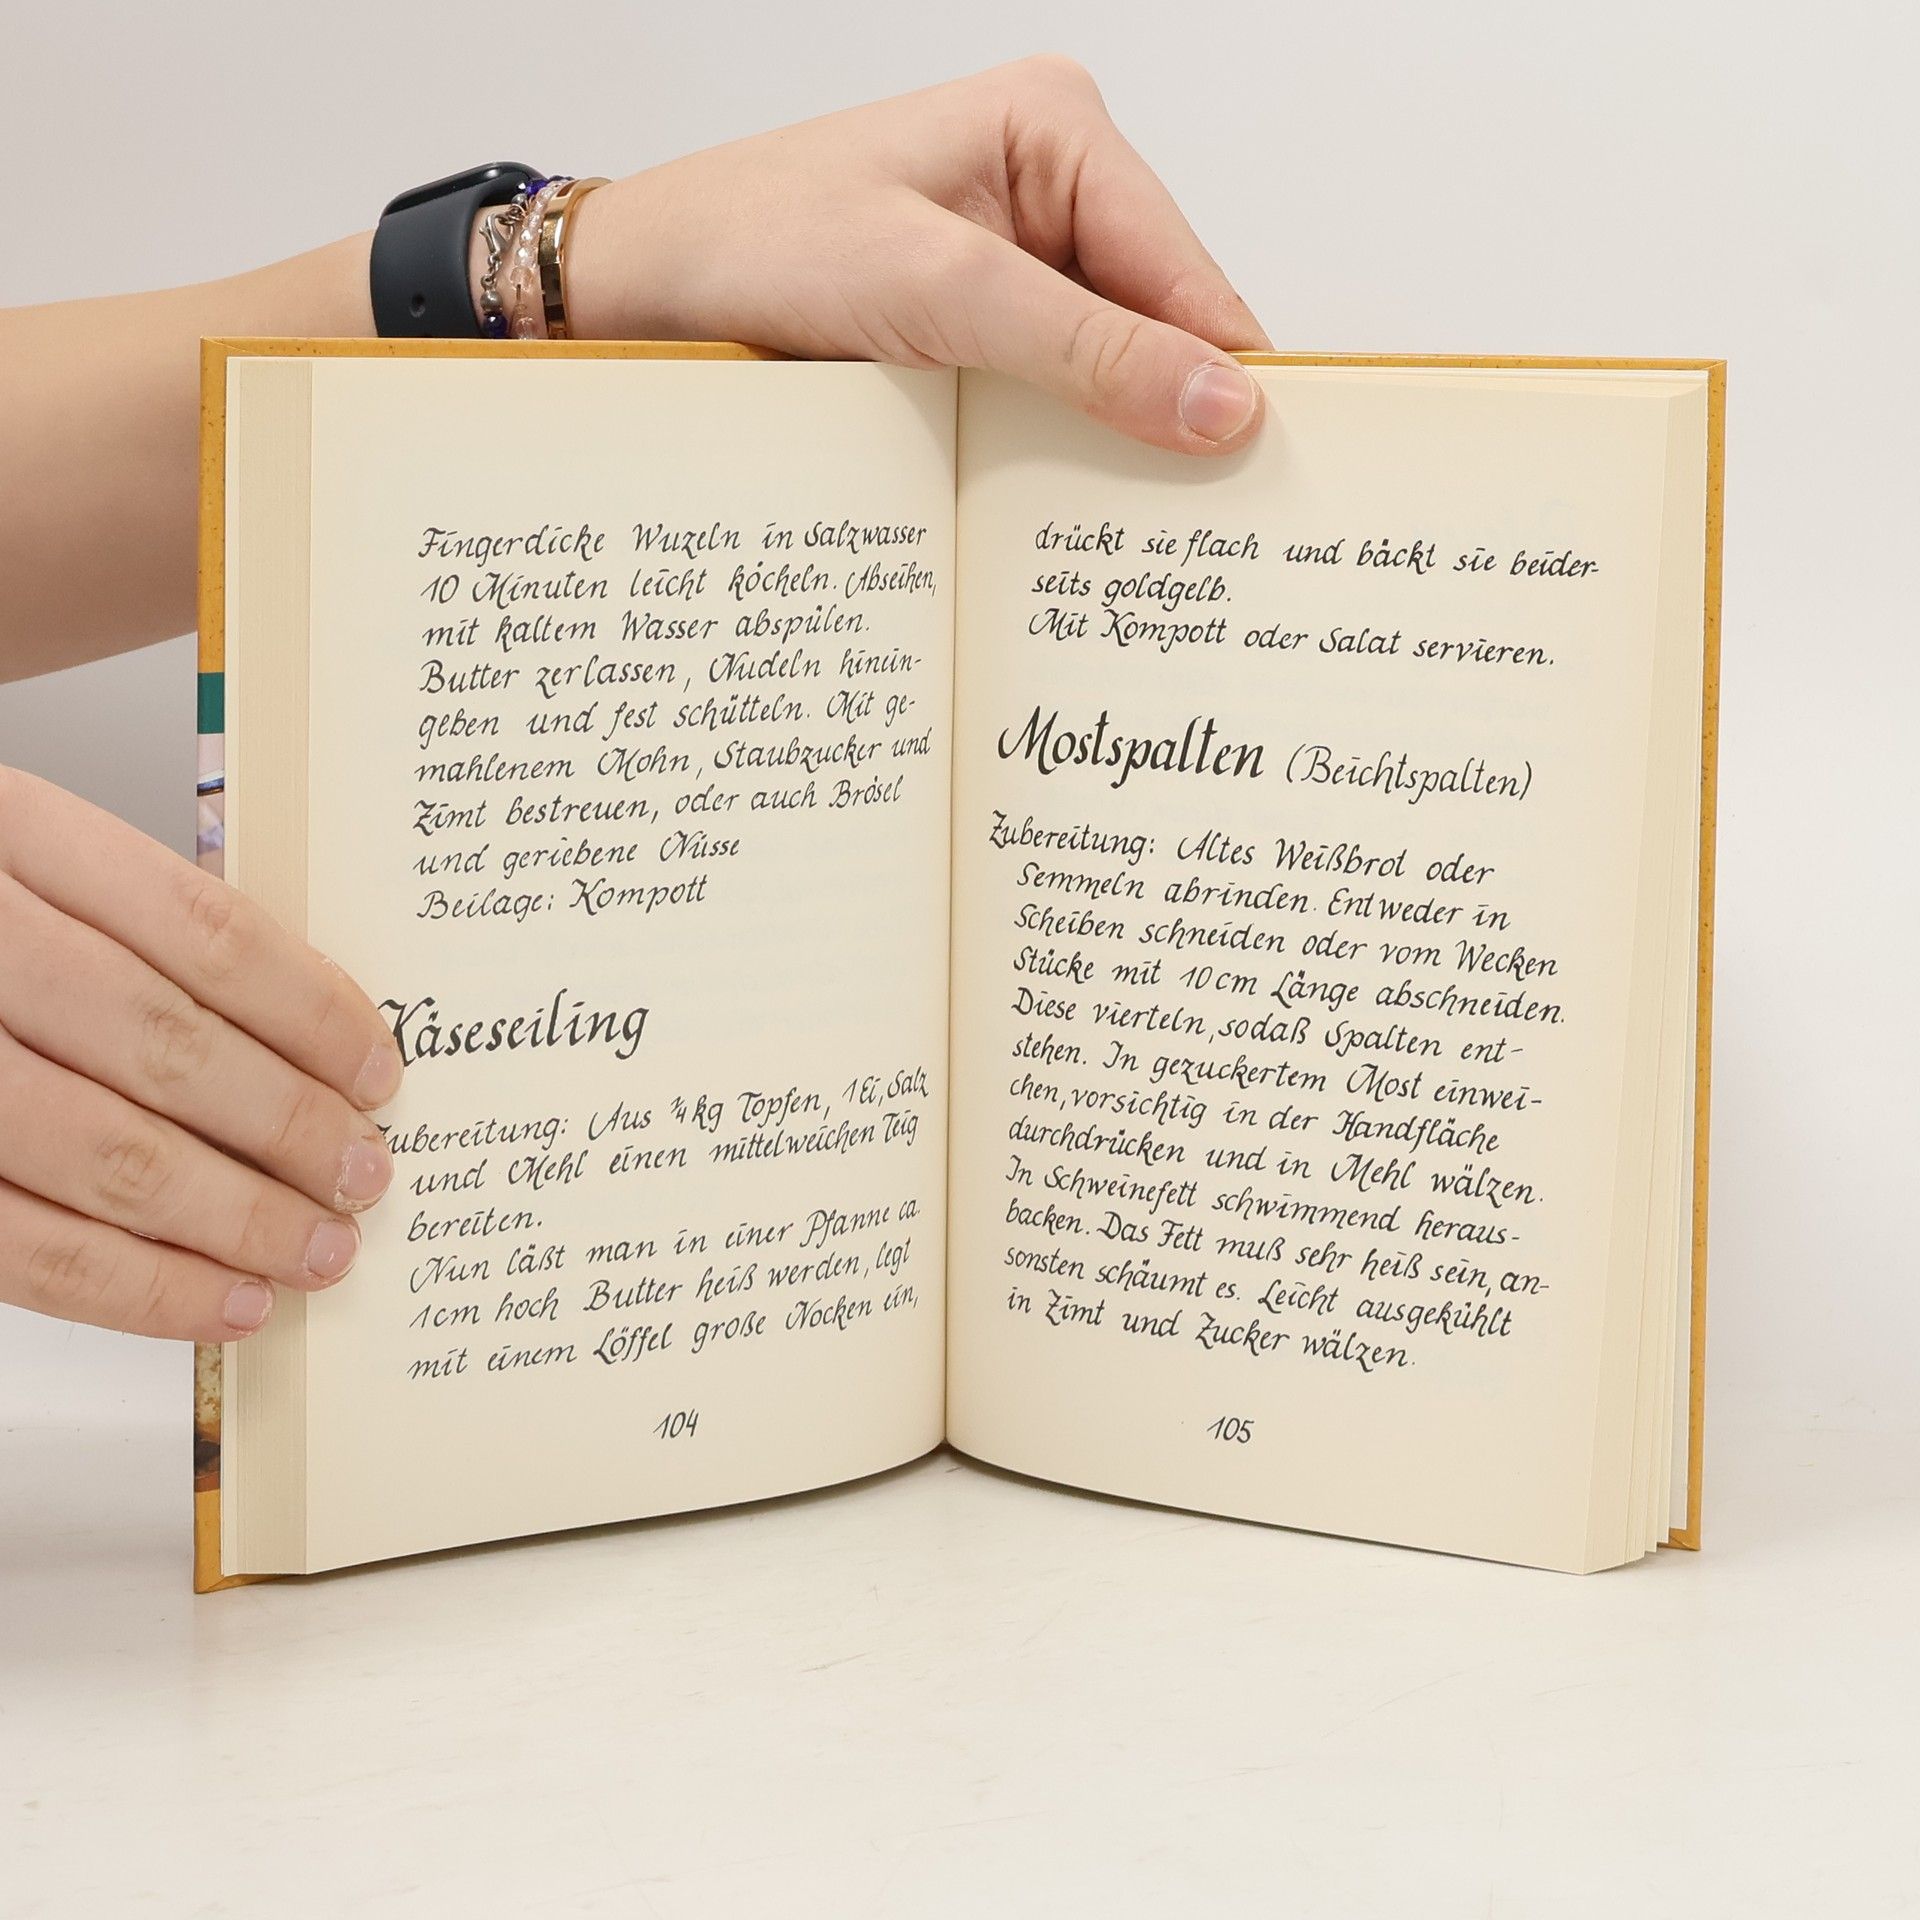 Fingerdicke Wuzeln in Salzwasser
10 Minuten leicht köcheln. Abseihen,
mit kaltem Wasser abspülen.
Butter zerlassen, Nudeln hinein-
geben und fest schütteln. Mit ge-
mahlenem Mohn, Staubzucker und
Zimt bestreuen, oder auch Brösel
und geriebene Nüsse
Beilage: Kompott
Käseseiling
Zubereitung: Aus ¾ kg Topfen, 1 Ei, Salz
und Mehl einen mittelweichen Teig
bereiten.
Nun läßt man in einer Pfanne ca.
1cm hoch Butter heiß werden, legt
mit einem Löffel große Nocken ein,
104
drückt sie flach und bäckt sie beider-
seits goldgelb.
Mit Kompott oder Salat servieren.
Mostspalten (Beichtspalten)
Zubereitung: Altes Weißbrot oder
Semmeln abrinden. Entweder in
Scheiben schneiden oder vom Wecken
Stücke mit 10 cm Länge abschneiden.
Diese vierteln, sodaß Spalten ent-
stehen. In gezuckertem Most einwei-
chen, vorsichtig in der Handfläche
durchdrücken und in Mehl wälzen.
In Schweinefett schwimmend heraus-
backen. Das Fett muß sehr heiß sein, an-
sonsten schäumt es. Leicht ausgekühlt
in Zimt und Zucker wälzen.
105